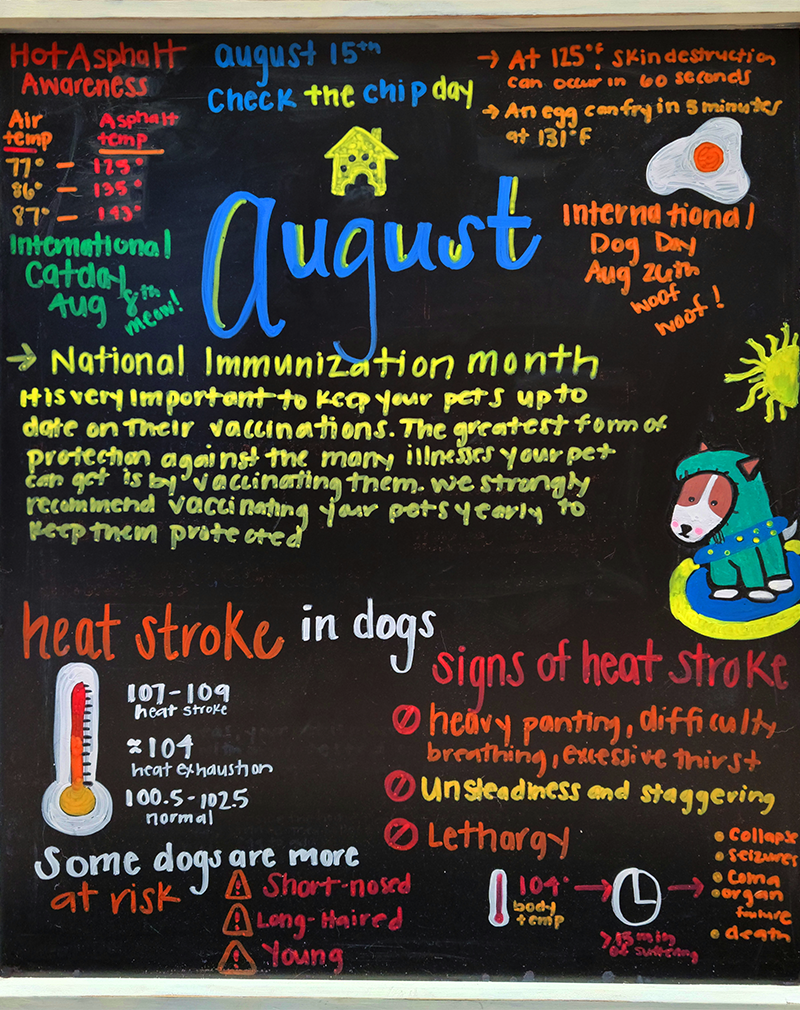 Hot Asphalt
Awareness
Air
temp
Asphalt
temp
77° - 125°
86° - 135°
87° - 143°
International
Cat day
Aug 8th
meow!
august 15th
Check the chip day
→ At 125°F, skin destruction
can occur in 60 seconds
→ An egg can fry in 5 minutes
at 131°F
august
International
Dog Day
Aug 26th
woof
woof!
→ National Immunization month
It is very important to keep your pets up to
date on their vaccinations. The greatest form of
protection against the many illnesses your pet
can get is by vaccinating them. We strongly
recommend vaccinating your pets yearly to
keep them protected
heat stroke in dogs
107-109
heat stroke
≈104
heat exhaustion
100.5-102.5
normal
signs of heat stroke
heavy panting, difficulty
breathing, excessive thirst
Unsteadness and staggering
Lethargy
Some dogs are more
at risk
Short-nosed
Long-Haired
Young
104°
body
temp
→
>15 min
of suffering
→
• collapse
• seizures
• coma
• organ
failure
• death